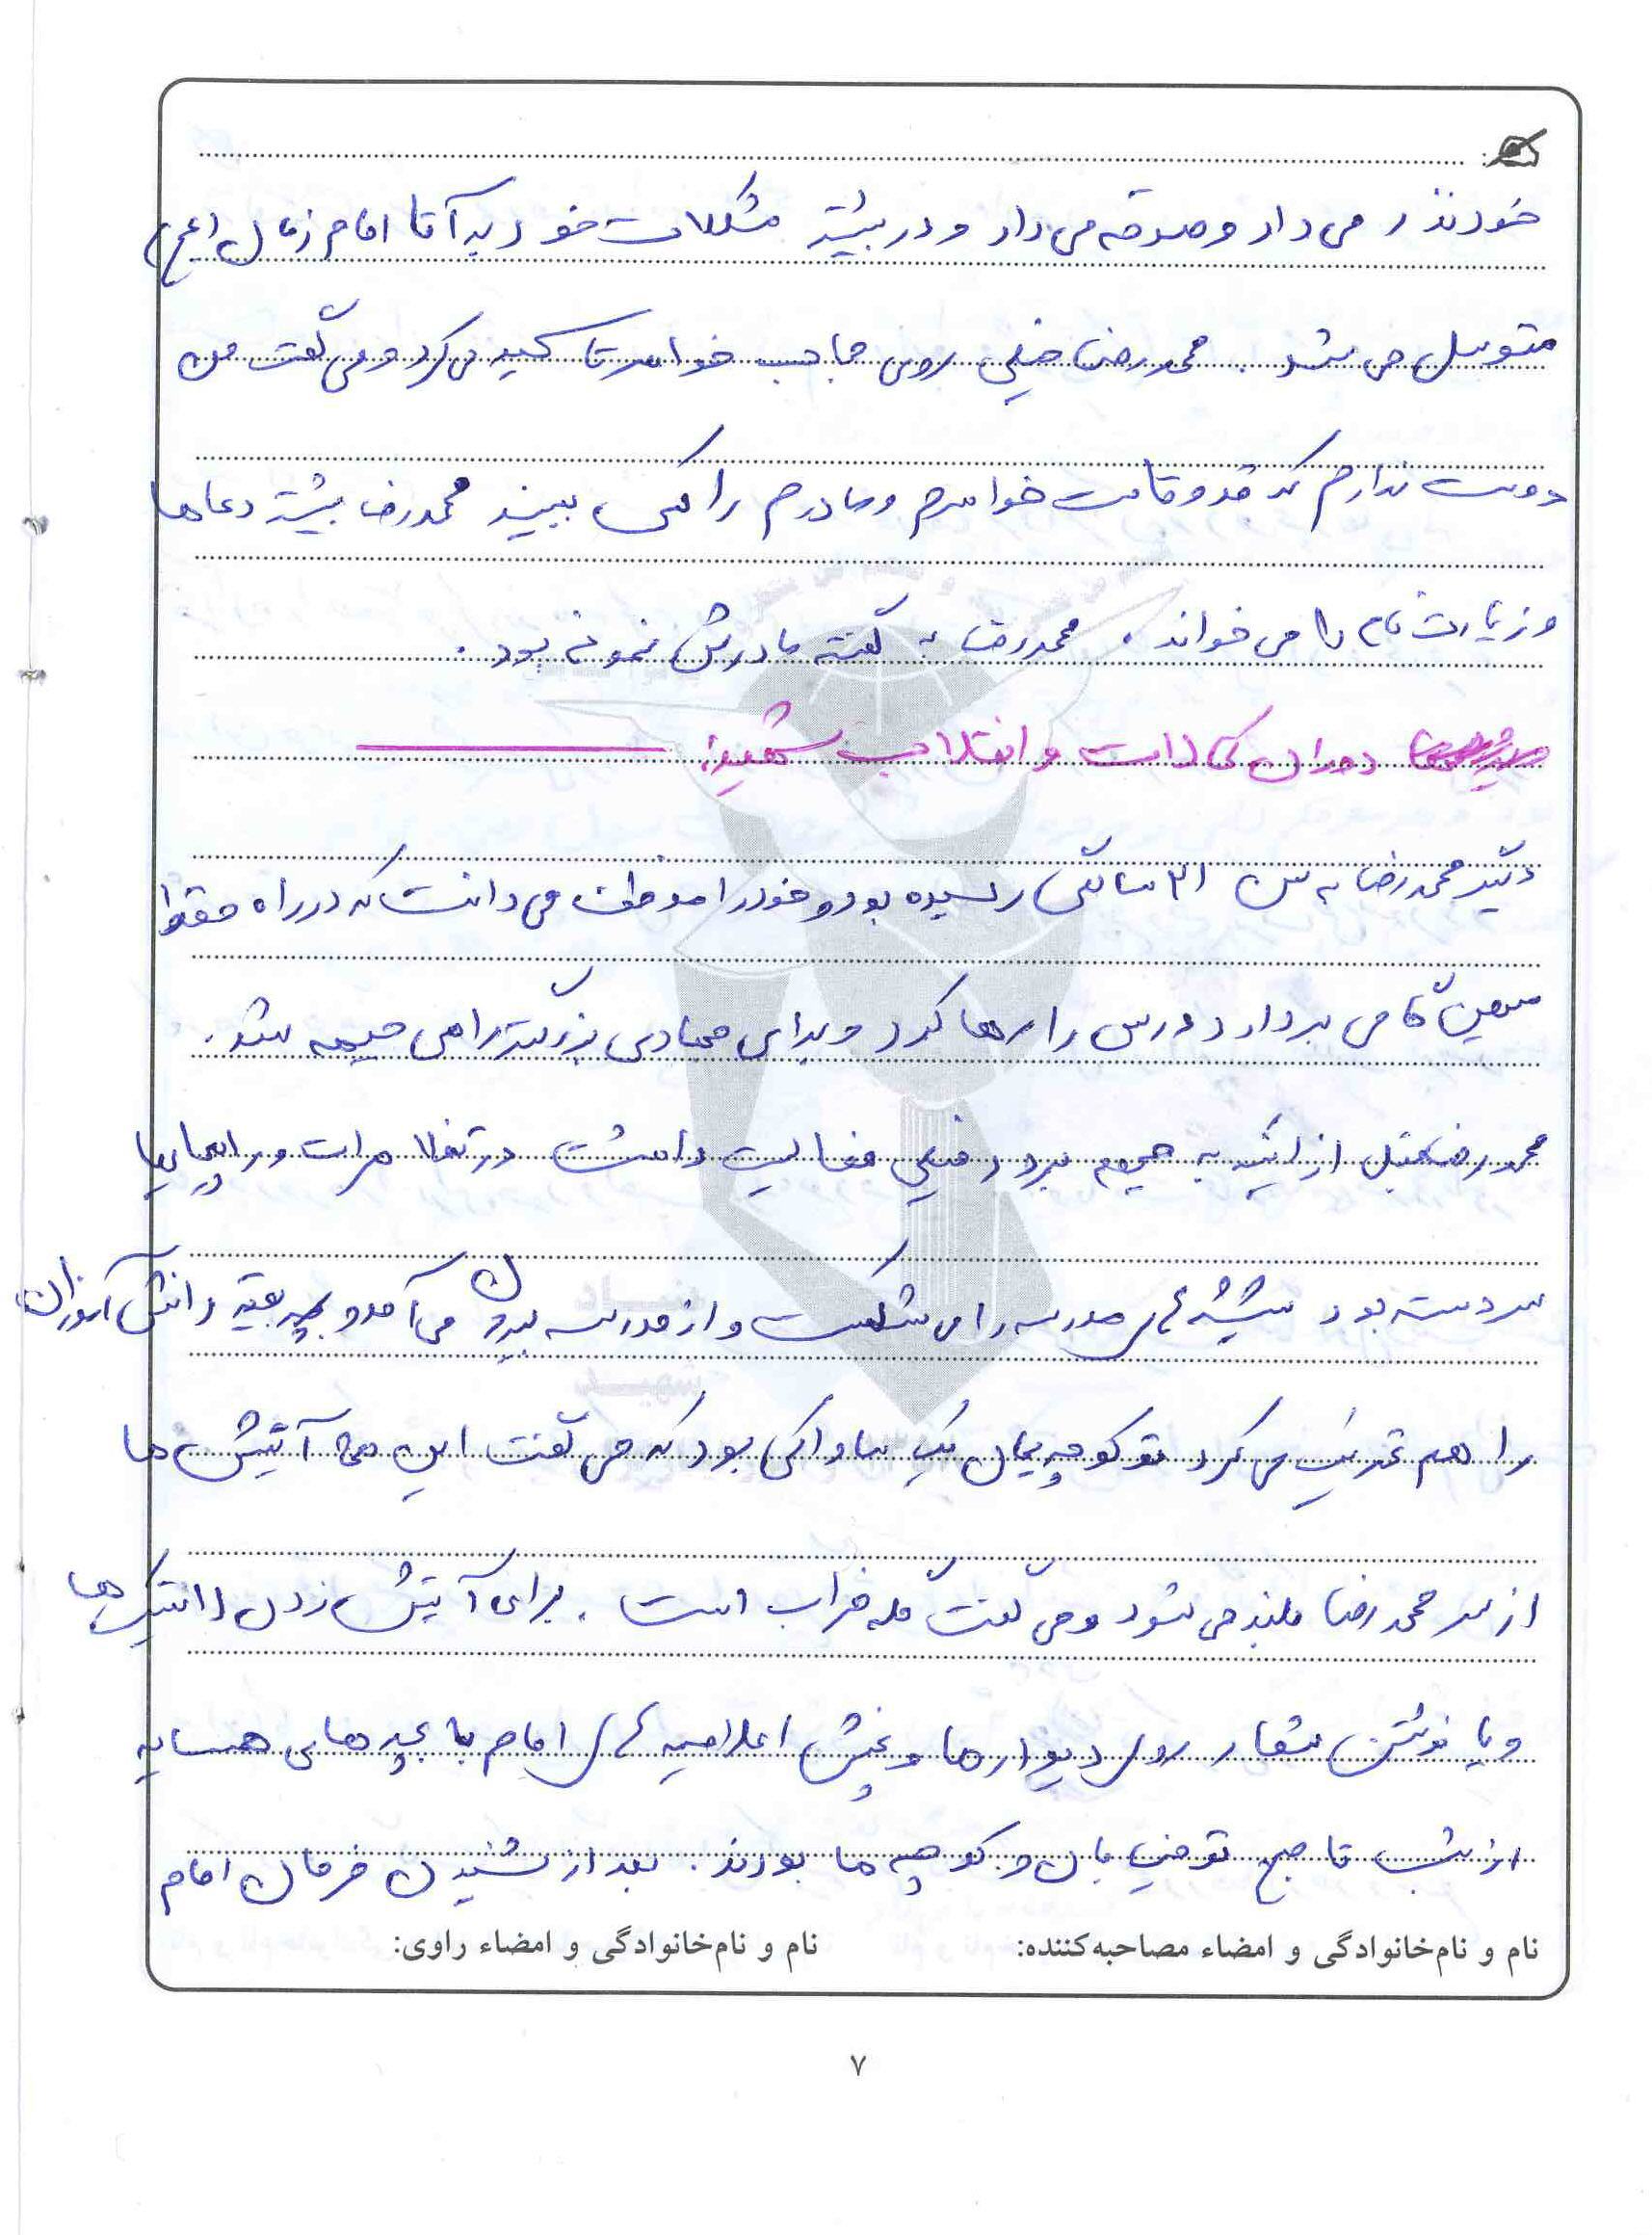 خود نذر می داد و صدقه می داد و در بیشتر مشکلات خود به آقا امام زمان (عج)
متوسل می شد. محمدرضا خیلی روی حجاب خواهر تاکید می کرد و می گفت من
دوست ندارم که قد و قامت خواهرم و مادرم را کسی ببیند محمدرضا بیشتر دعاها
و زیارت نامه را می خواند. محمدرضا به گفته مادرش نمونه بود.
دوران مبارزات و انقلاب شهید:
دیگر محمدرضا به سن ۲۱ سالگی رسیده بود و خود را موظف می دانست که در راه حفظ
میهن گامی بردارد درس را رها کرد و برای جهادی بزرگتر راهی جبهه شد.
محمدرضا قبل از اینکه به جبهه برود خیلی فعالیت داشت در تظاهرات و راهپیمایی‌ها
سردسته بود شیشه های مدرسه را می شکست و از مدرسه بیرون می آمد و بقیه دانش آموزان
را هم تحریک می کرد تو کوچه یمان یک ساواکی بود که می گفت این همه آتیش ها
از سر محمدرضا بلند می شود و می گفت کله خراب است. برای آتیش زدن لاستیک ها
و یا نوشتن شعار روی دیوارها و پخش اعلامیه های امام با بچه های همسایه
از شب تا صبح تو خیابان و کوچه ها بودند. بعد از شنیدن فرمان امام
نام و نام‌خانوادگی و امضاء مصاحبه‌کننده: نام و نام‌خانوادگی و امضاء راوی:
۷